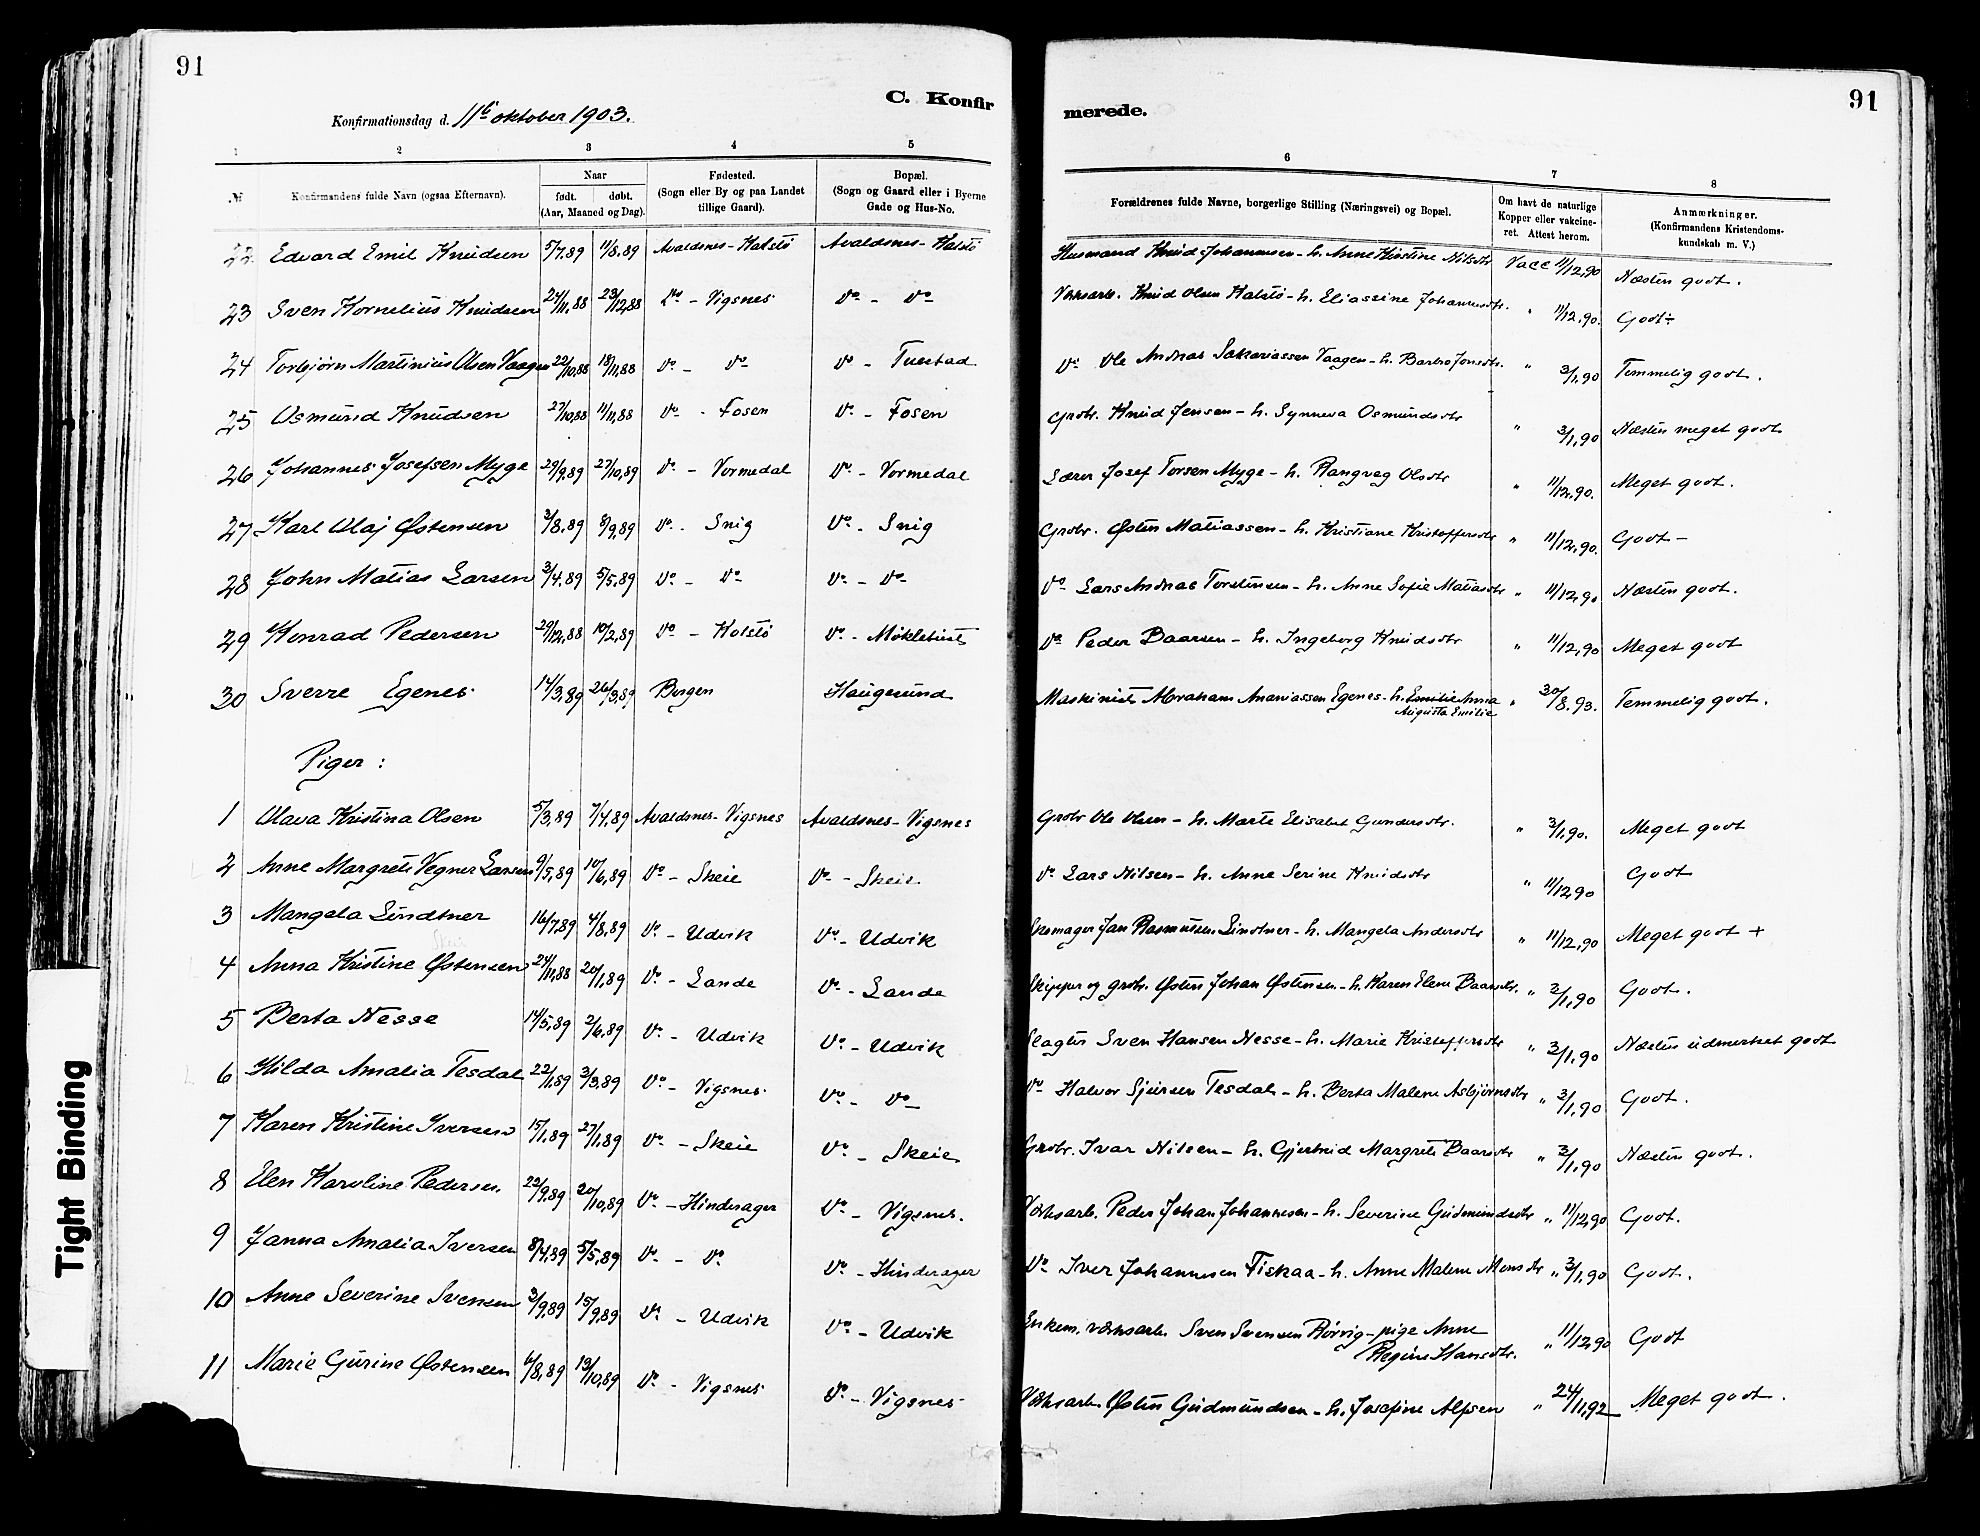 91
C. Konfir
merede.
91
Konfirmationsdag d. 11te oktober 1903.
1 2 3 4 5 6 7 8
№ Konfirmandens fulde Navn (ogsaa Efternavn). Naar født. døbt. (Aar, Maaned og Dag). Fødested. (Sogn eller By og paa Landet tillige Gaard). Bopæl. (Sogn og Gaard eller i Byerne Gade og Hus-No. Forældrenes fulde Navne, borgerlige Stilling (Næringsvei) og Bopæl. Om havt de naturlige Kopper eller vakcineret. Attest herom. Anmærkninger. (Konfirmandens Kristendomskundskab m. V.)
22 Edvard Emil Knudsen 5/7.89 11/8.89 Avaldsnes - Kalstø Avaldsnes - Kalstø Husmand Knud Johannesen - h. Anne Kirstine Nilsdtr Vacc 11/12,90 Næsten godt.
23 Sven Kornelius Knudsen 24/11.88 23/12,88 Do - Vigsnes Do - Do Værksarb. Knud Olsen Kalstø - h. Eliassine Johannesdtr. " 11/12.90. Godt ÷
24 Torbjørn Martinius Olsen Vaagen 22/10,88 18/11,88 Do - Do Do - Tuestad Do Ole Andreas Sakariassen Vaagen - h. Barbro Jonsdtr. " 3/1,90 Temmelig godt.
25 Osmund Knudsen 27/10,88 11/11,88 Do - Fosen Do - Fosen Grdbr. Knud Jensen - h. Synneva Osmundsdtr " 3/1,90 Næsten meget godt
26 Johannes Josefsen Myge 29/9.89 27/10,89 Do - Vormedal Do - Vormedal Lærer Josef Torsen Myge - h. Rangveg Olsdtr " 11/12,90. Meget godt.
27 Karl Olaj Østensen 3/8,89 8/9,89 Do - Snig Do - Snig Grdbr. Østen Matiassen - h. Kristiane Kristoffersdtr " 11/12,90. Godt -
28 John Matias Larsen 3/4.89 5/5.89 Do - Do Do - Do Do Lars Andreas Torstensen - h. Anne Sofie Matiasdtr " 11/12,90 Næsten godt.
29 Konrad Pedersen 29/12,88 10/2,89 Do - Kolstø Do - Møklebust Do Peder Baarsen - h. Ingeborg Knudsdtr " 11/12,90 Meget godt
30 Sverre Egenes 14/3,89 26/3,89 Bergen Haugesund Maskinist Abraham Ananiassen Egenes - h. Emilie Anna " 30/8.93. Temmelig godt.
Augusta Emilie
Piger:
1 Olava Kristina Olsen 5/3,89 7/4,89 Avaldsnes - Vigsnes Avaldsnes - Vigsnes Grdbr Ole Olsen - h. Marte Elisabet Gundersdtr. " 3/1,90. Meget godt
2 Anne Margrete Vegner Larsen 9/5,89 10/6,89 Do - Skeie Do - Skeie Do Lars Nilsen - h. Anne Serine Knudsdtr " 11/12,90 Godt
3 Mangela Lindtner 16/7,89 4/8,89 Do - Udvik Do - Udvik Skomager Jan Rasmussen Lindtner - h. Mangela Andersdtr " 11/12,90 Meget godt +
Skeie
4 Anna Kristine Østensen 24/11,88 20/1,89 Do - Lande Do - Lande Skipper og grdbr. Østen Johan Østensen - h. Karen Elene Baarsdtr. " 3/1,90 Godt.
5 Berta Nesse 14/5,89 2/6,89 Do - Udvik Do - Udvik Slagter Sven Hansen Nesse - h. Marie Kristoffersdtr " 3/1,90 Næsten udmerket godt
6 Hilda Amalia Tesdal 22/1,89 3/3.89 Do - Vigsnes Do - Do Do Halvor Sjursen Tesdal - h. Berta Malene Asbjørnsdtr " 3/1,90 Godt.
7 Karen Kristine Iversen 15/1.89 27/1,89 Do - Skeie Do - Skeie Grdbr. Ivar Nilsen - h. Gjertrud Margrete Baarsdtr " 3/1,90 Næsten godt.
8 Elen Karoline Pedersen 22/9.89 20/10,89 Do - Hinderager Do - Vigsnes. Værksarb. Peder Johan Johannesen - h. Severine Gudmundsdtr " 11/12,90 Godt.
9 Janna Amalia Iversen 8/4,89 5/5,89 Do - Do Do - Hinderager Do Iver Johannesen Fiskaa - h. Anne Malene Monsdtr " 3/1,90 Godt.
10 Anne Severine Svensen 3/9,89 15/9,89 Do - Udvik Do - Udvik Enkem. værksarb. Sven Svensen Rørvig - pige Anne " 11/12,90 Godt
Regine Hansdtr.
11 Marie Gurine Østensen 6/8,89 13/10,89 Do - Vigsnes Do - Vigsnes Værksarb. Østen Gudmundsen - h. Josefine Alfsen " 24/11,92 Meget godt.
Tight Binding